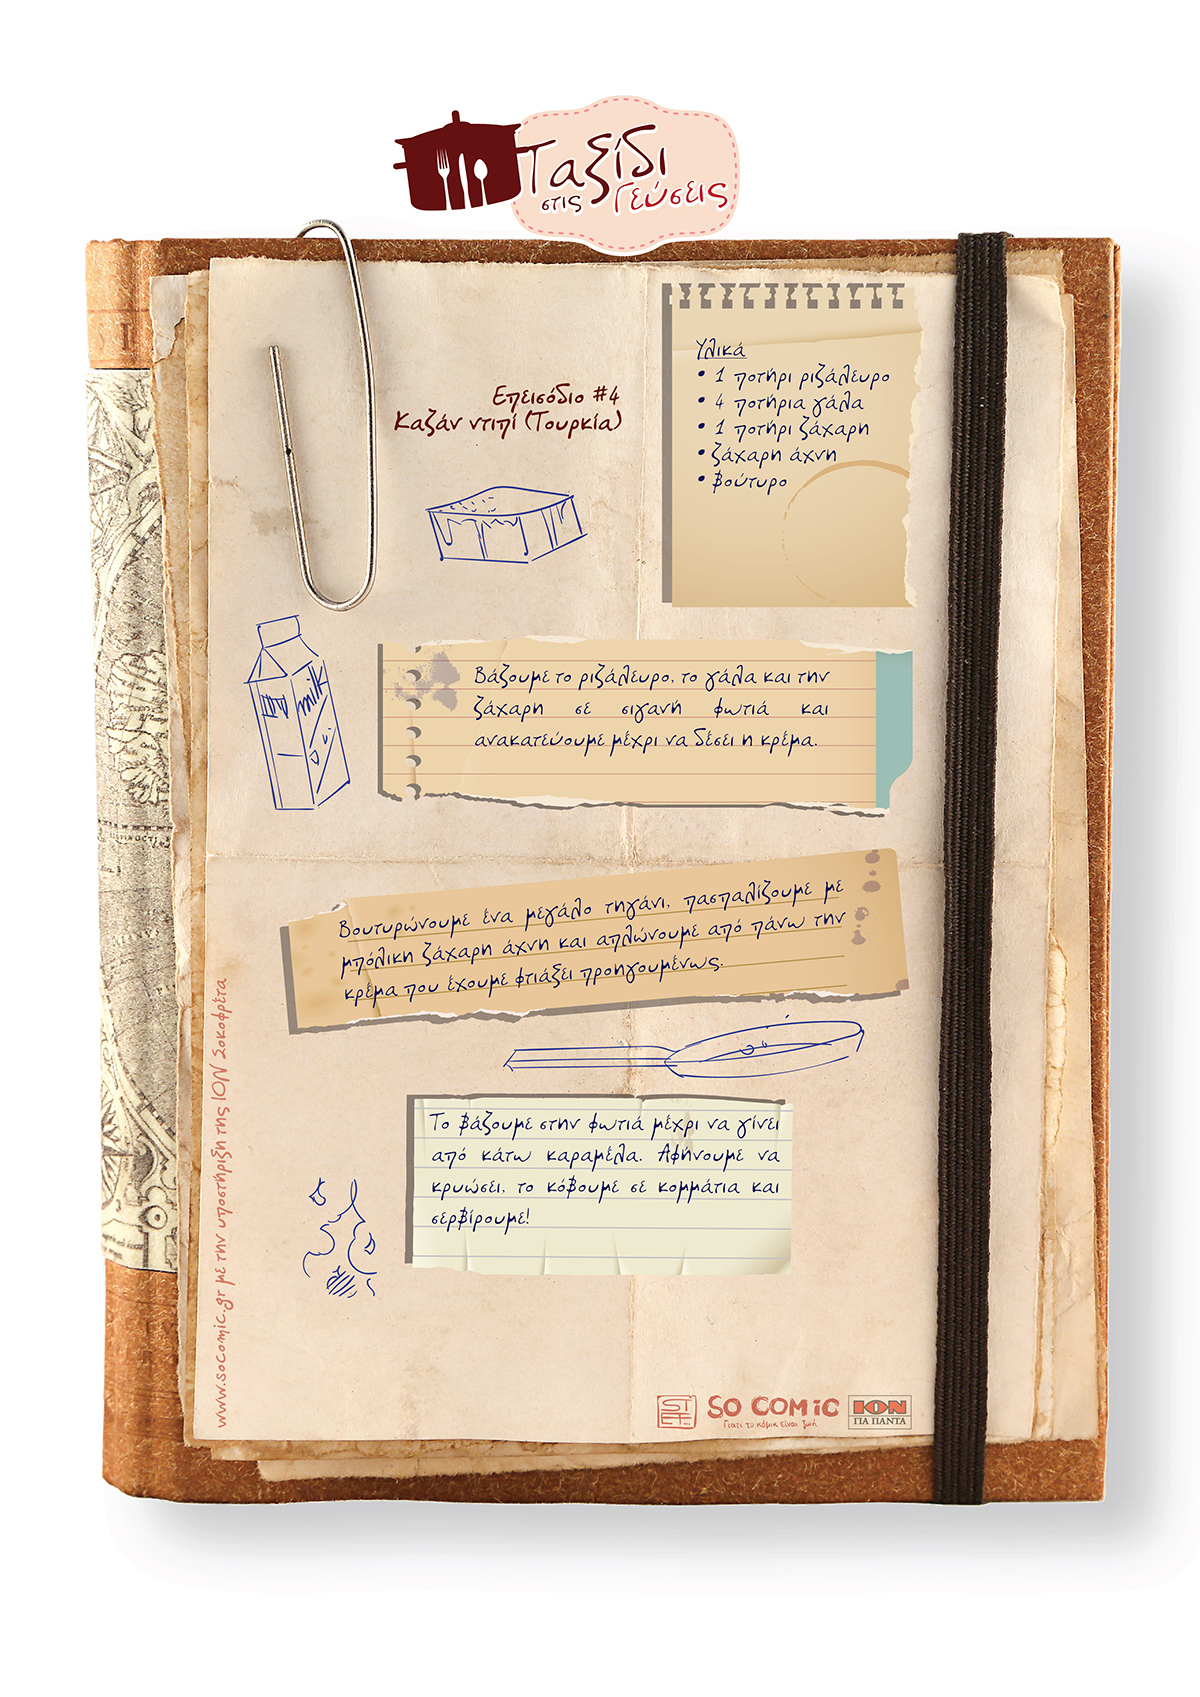 Ταξίδι
στις Γεύσεις
Επεισόδιο #4
Καζάν ντιπί (Τουρκία)
Υλικά
• 1 ποτήρι ριζάλευρο
• 4 ποτήρια γάλα
• 1 ποτήρι ζάχαρη
• ζάχαρη άχνη
• βούτυρο
milk
Βάζουμε το ριζάλευρο, το γάλα και την
ζάχαρη σε σιγανή φωτιά και
ανακατεύουμε μέχρι να δέσει η κρέμα.
Βουτυρώνουμε ένα μεγάλο τηγάνι, πασπαλίζουμε με
μπόλικη ζάχαρη άχνη και απλώνουμε από πάνω την
κρέμα που έχουμε φτιάξει προηγουμένως.
Το βάζουμε στην φωτιά μέχρι να γίνει
από κάτω καραμέλα. Αφήνουμε να
κρυώσει, το κόβουμε σε κομμάτια και
σερβίρουμε!
www.socomic.gr με την υποστήριξη της ΙΟΝ Σοκοφρέτα
SO COMIC
Γιατί το κόμικ είναι ζωή
ΙΟΝ
ΓΙΑ ΠΑΝΤΑ